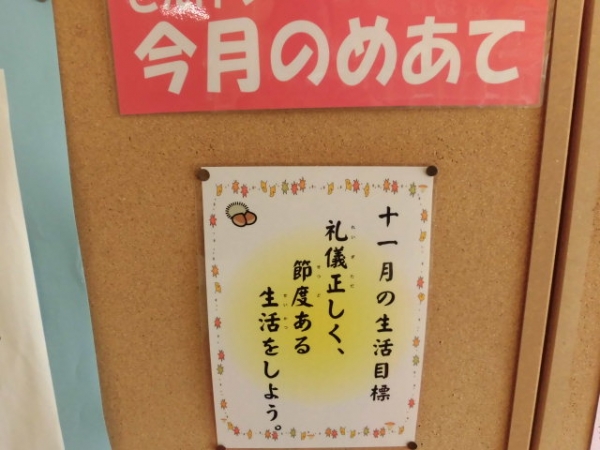 今月のめあて
十一月の生活目標
礼儀正しく、
節度ある
生活をしよう。